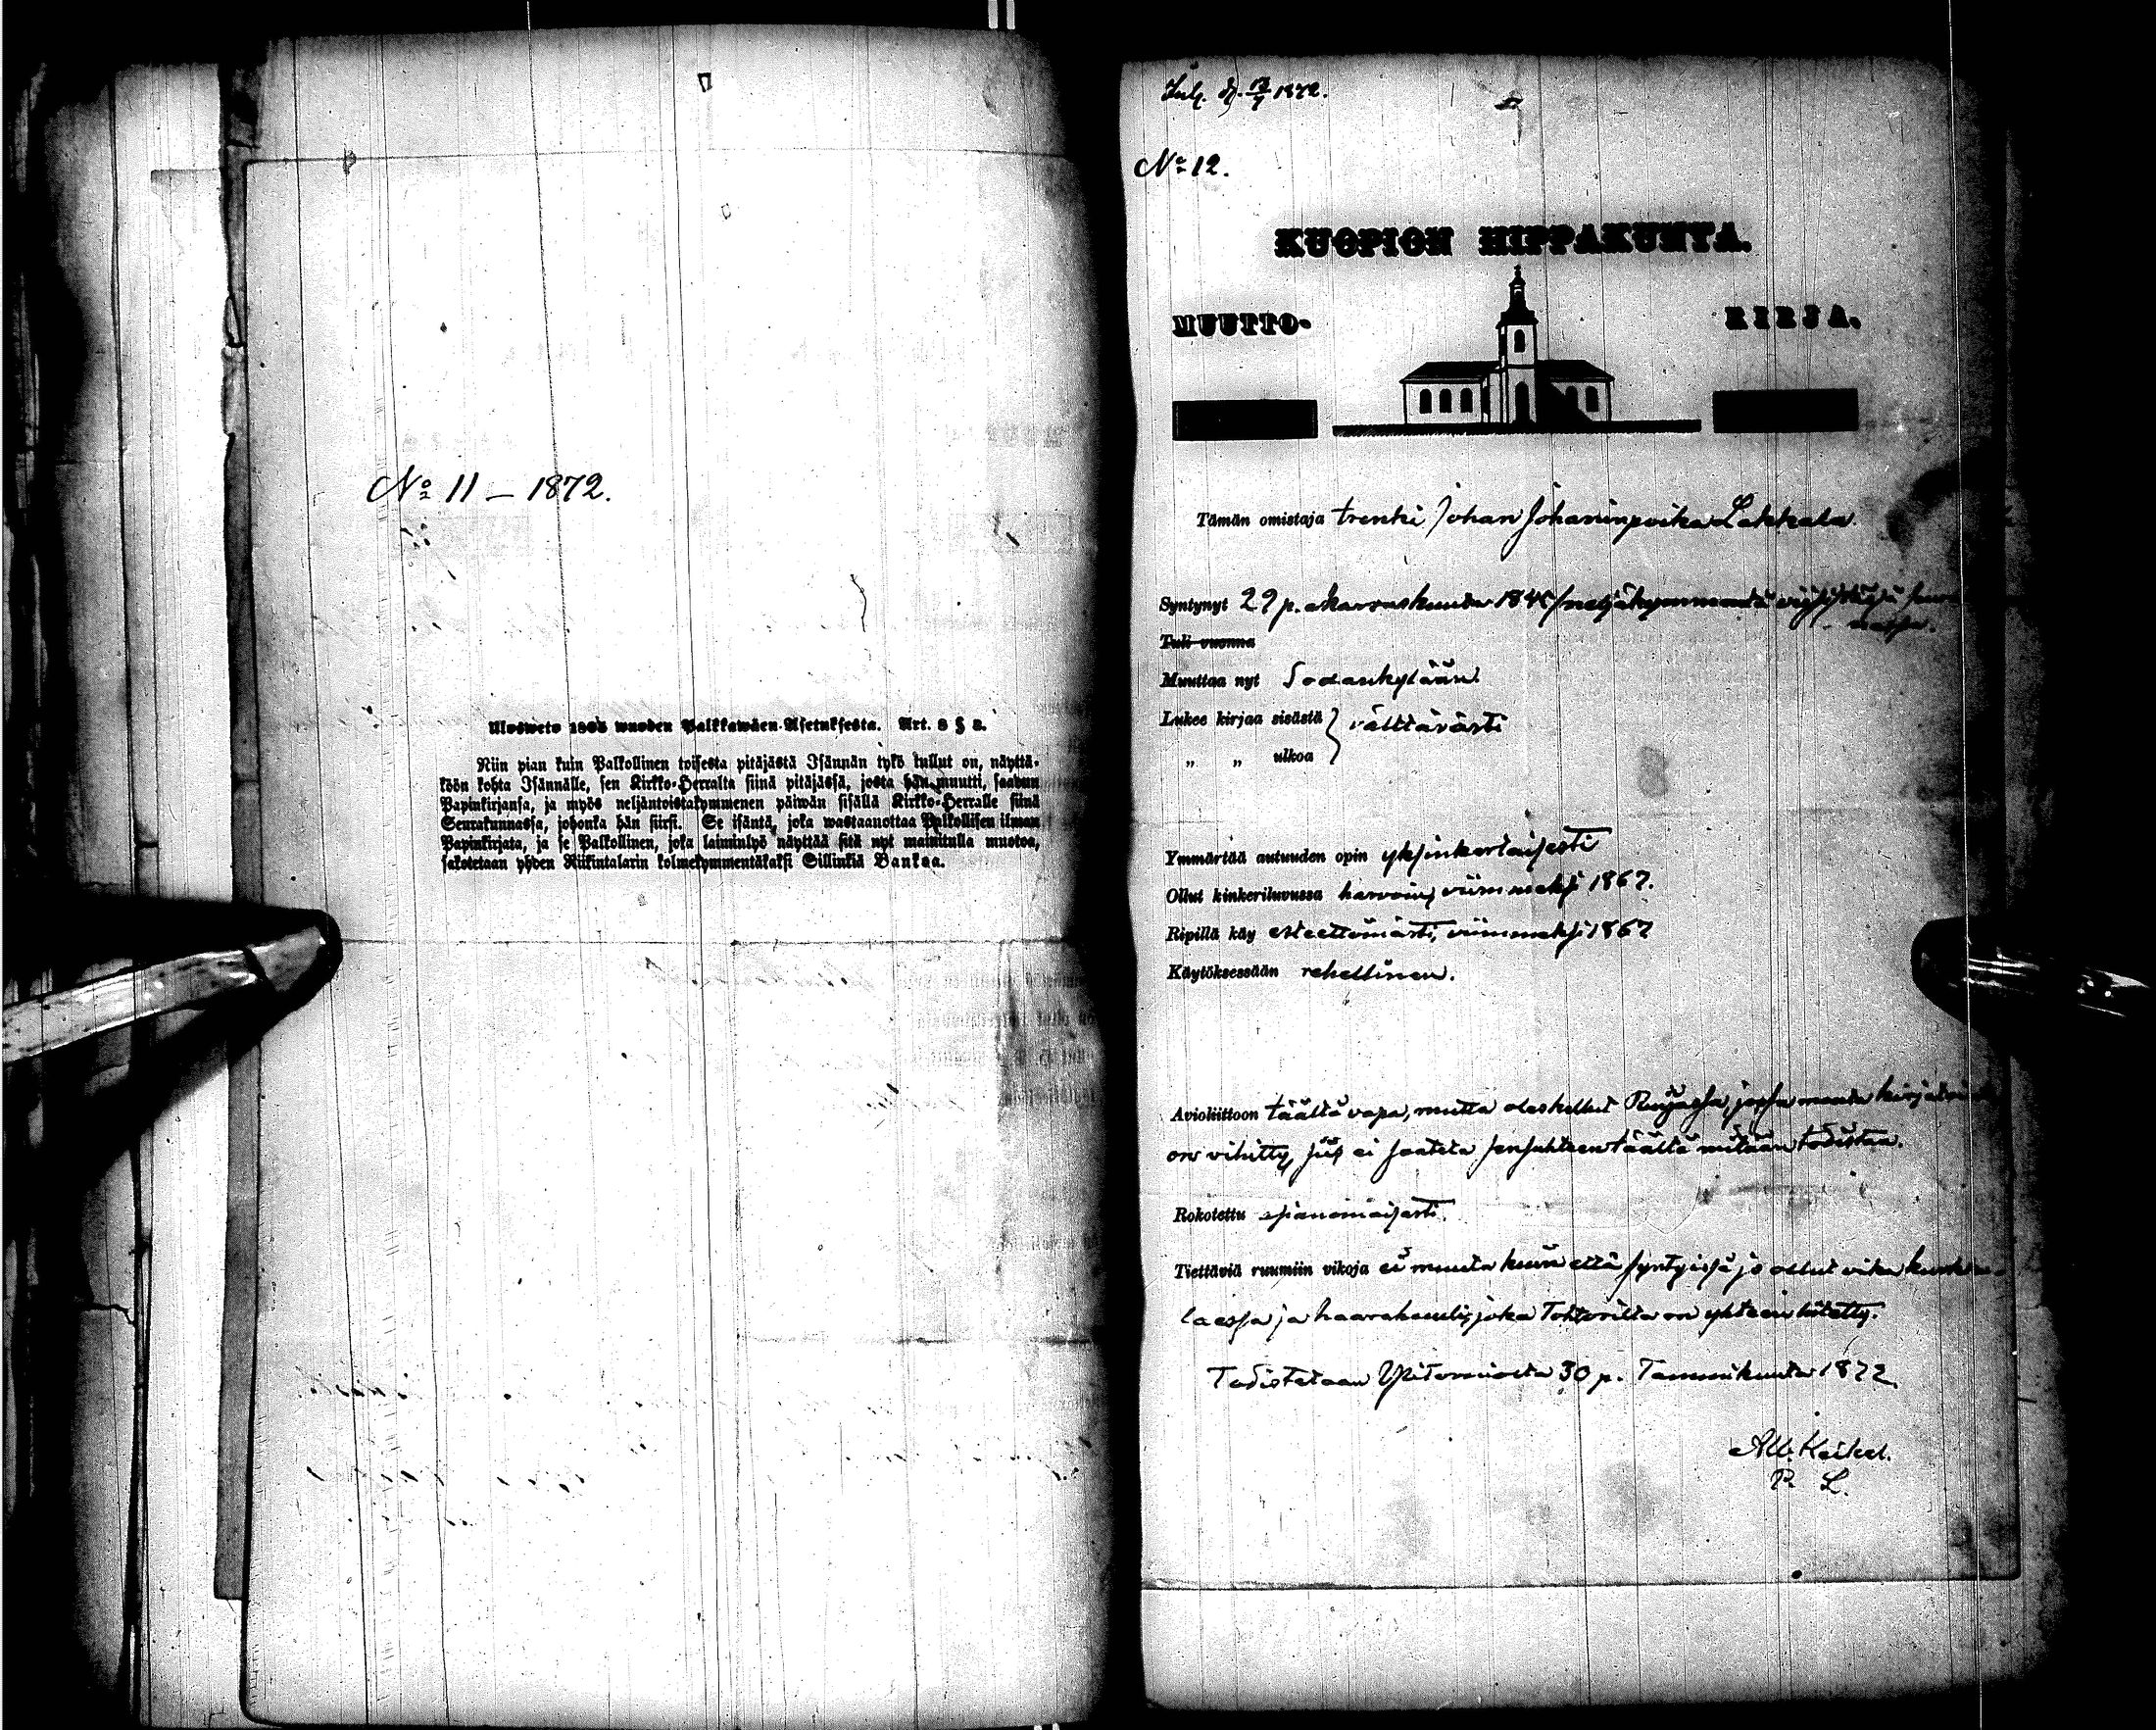 No 11 – 1872.
Ulosweto 1865 wuoden Palkkawäen-Asetuksesta. Art. 8 § 8.
Niin pian kuin Palkollinen toisesta pitäjästä Isännän tykö tullut on, näyttä-
köön kohta Isännälle, sen Kirkko-Herralta siinä pitäjässä, josta hän muutti, saadun
Papinkirjansa, ja myös neljäntoistakymmenen päiwän sisällä Kirkko-Herralle siinä
Seurakunnassa, johonka hän siirsi. Se isäntä, joka wastaanottaa Palkollisen ilman
Papinkirjata, ja se Palkollinen, joka laiminlyö näyttää sitä nyt mainitulla muotoa,
sakotetaan yhden Riikintalarin kolmekymmentäkaksi Sillinkiä Bankoa.
1872.
No 12.
KUOPION HIPPAKUNTA.
MUUTTO- KIRJA.
Tämän omistaja trenki Johan Johaninpoika Lakkala
Syntynyt 29 p. Marraskuuta 1845 (neljäkymmentä viisi)
Tuli vuonna
Muuttaa nyt Sodankylään.
Lukee kirjaa sisästä } välttävästi
„ „ ulkoa
Ymmärtää autuuden opin yksinkertaisesti
Ollut kinkeriluvussa harvoin, viimmeksi 1867.
Ripillä käy esteettömästi, viimmeksi 1867
Käytöksessään rehellinen.
Avioliittoon täältä vapa, mutta oleskellut Ruijassa, jossa muuta
on vihitty, siis ei saateta sensuhteen täältä mitään todistaa.
Rokotettu
Tiettäviä ruumiin vikoja ei muuta kuin että syntyissä jo ollut vika
laessa ja haarahuuli, joka Tohtorilta on yhteen
Todistetaan Ylitorniosta 30 p. Tammikuuta 1872.
Alb. Heikel.
P. L.